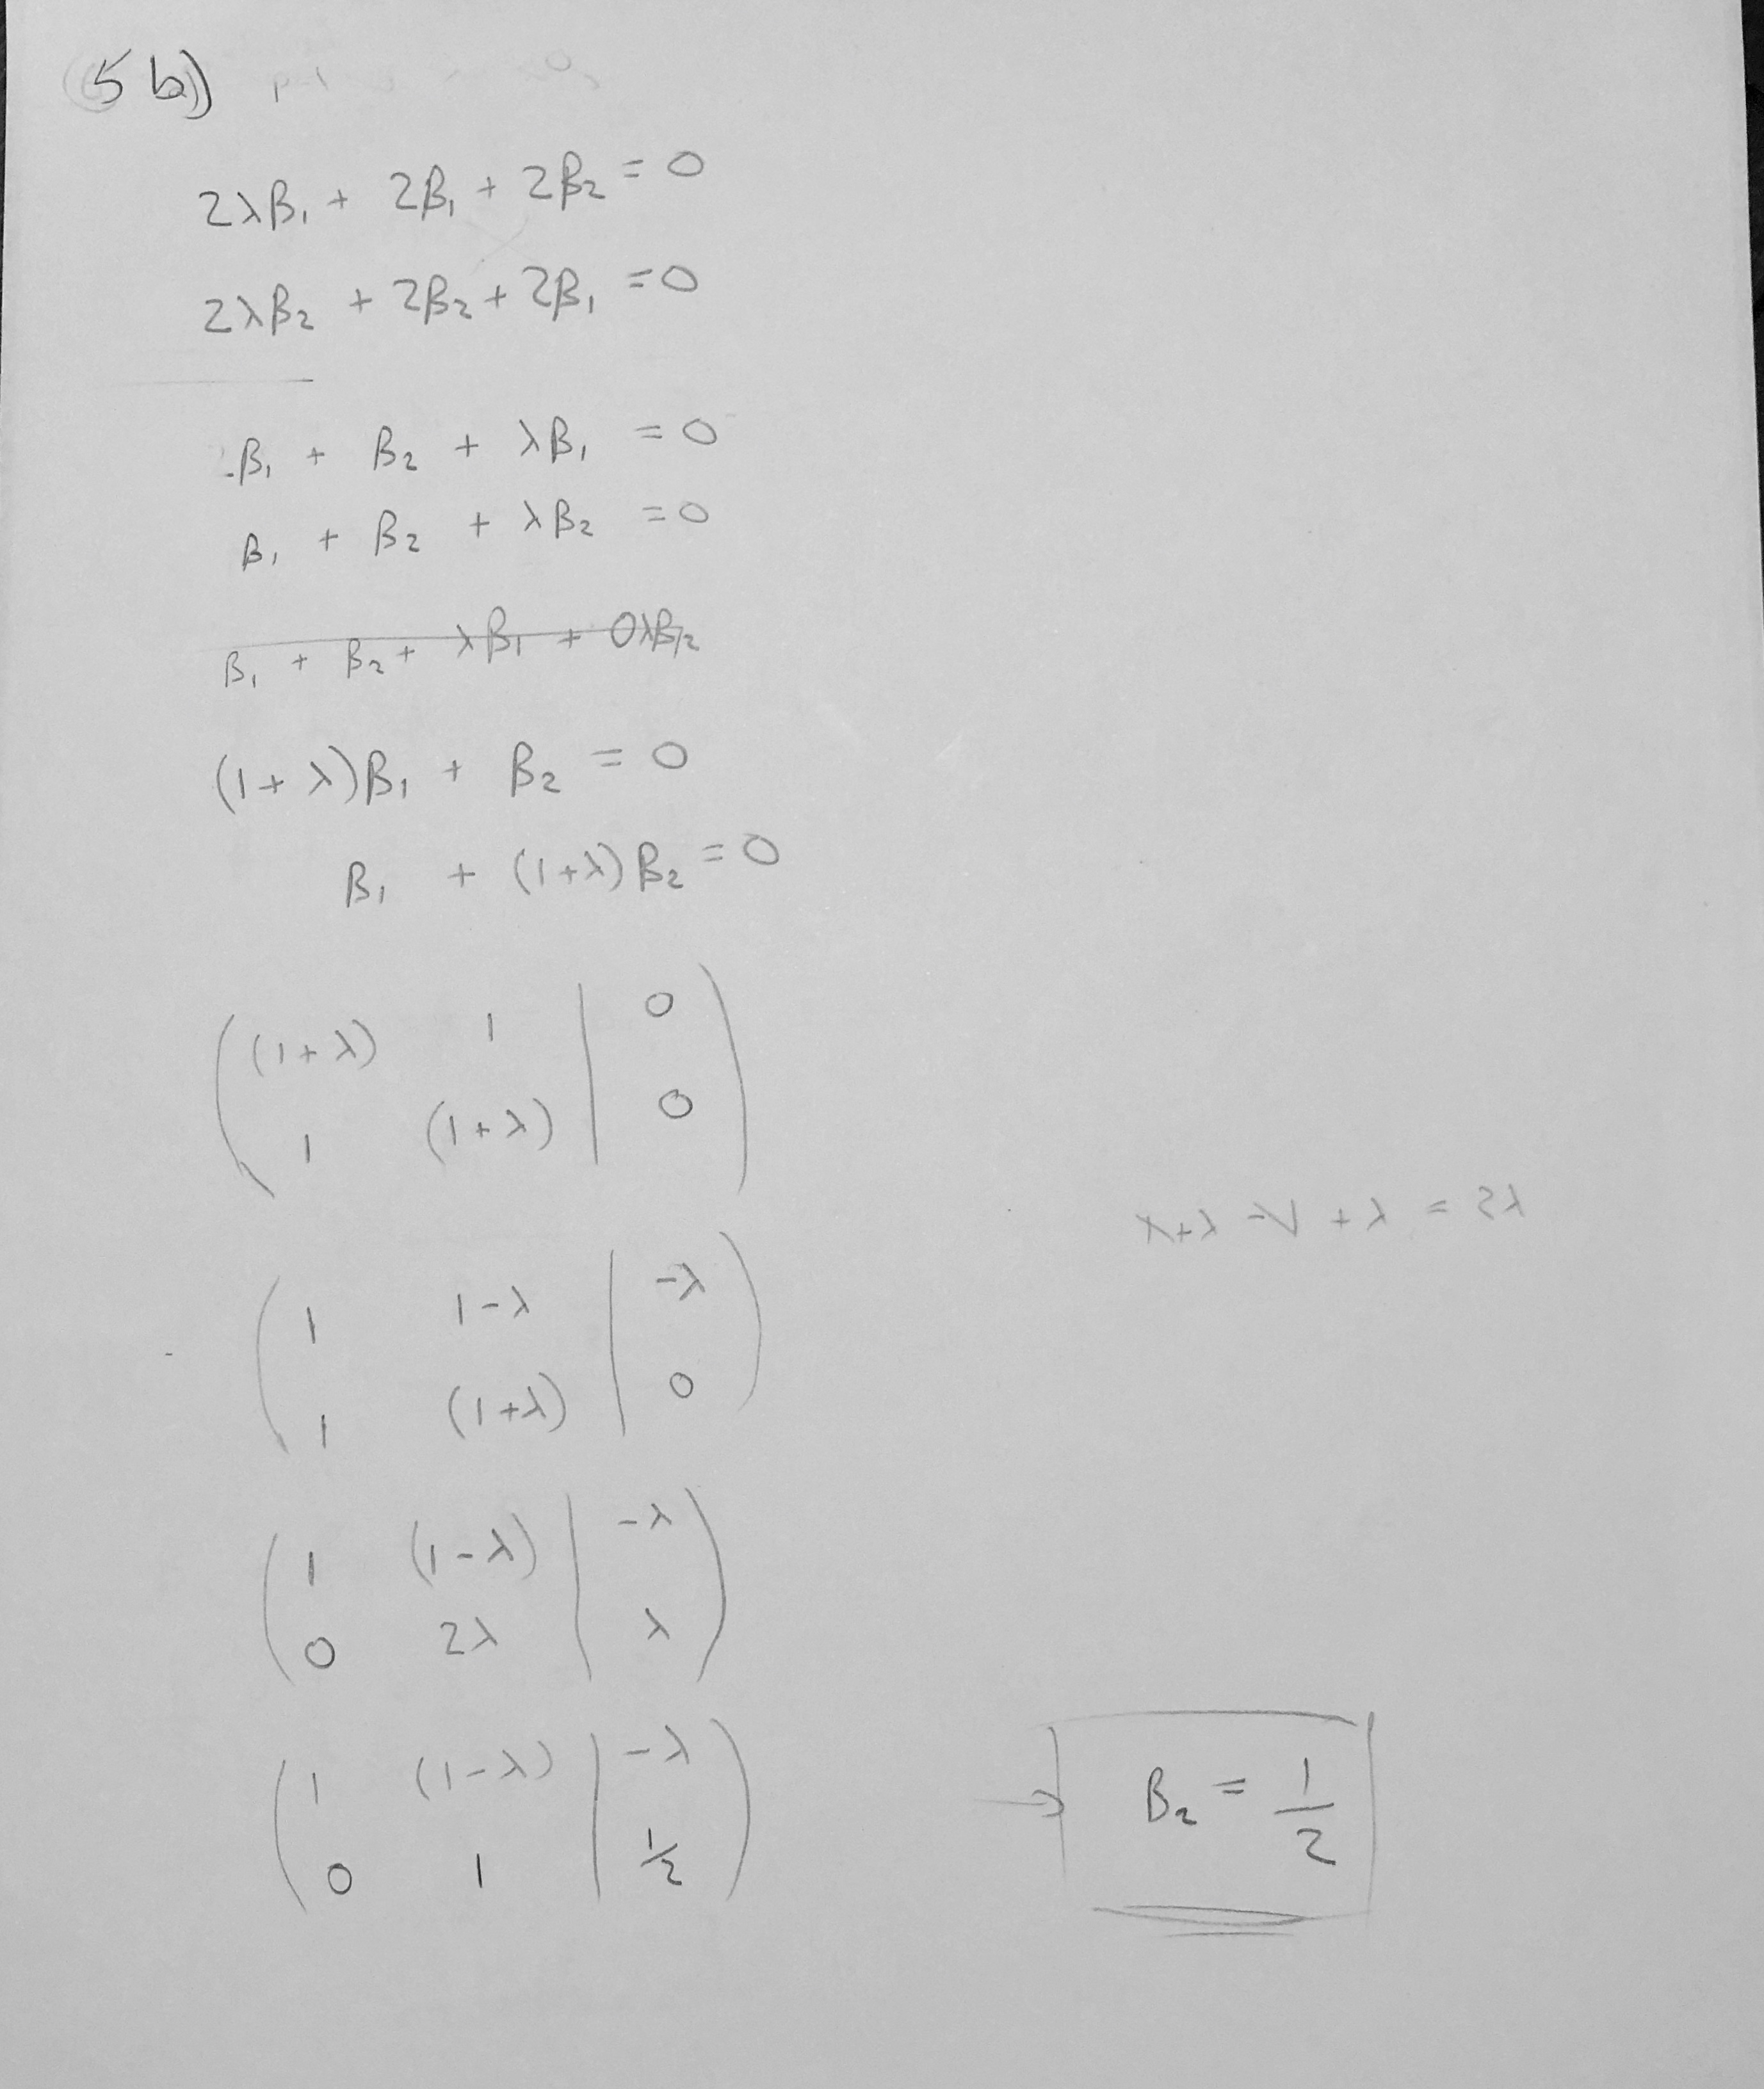 5 b))
2λβ₁ + 2β₁ + 2β₂ = 0
2λβ₂ + 2β₂ + 2β₁ = 0
β₁ + β₂ + λβ₁ = 0
β₁ + β₂ + λβ₂ = 0
β₁ + β₂ + λβ₁ + 0λβ₂
(1+λ)β₁ + β₂ = 0
β₁ + (1+λ)β₂ = 0
(1+λ) 1 | 0
1 (1+λ) | 0
1+λ - 1 + λ = 2λ
1 1-λ | -λ
1 (1+λ) | 0
1 (1-λ) | -λ
0 2λ | λ
1 (1-λ) | -λ
0 1 | 1/2
→ β₂ = 1/2